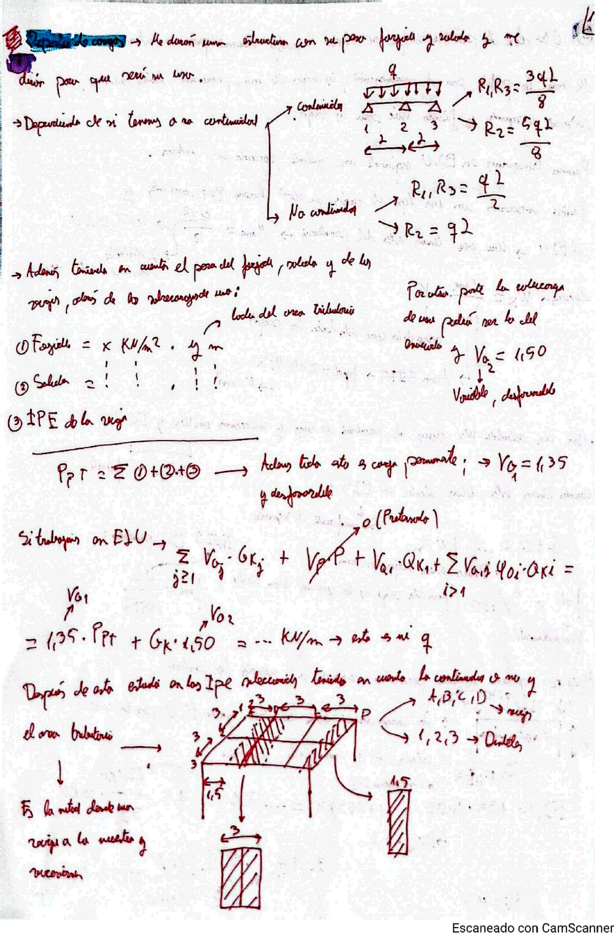 Reparto de cargas → Me darán una estructura con su peso forjado y solado y me
dirán para que será su uso.
→ Dependiendo de si tenemos o no continuidad
Continuidad
q
1 2 3
L L
R1, R3 = 3qL/8
R2 = 5qL/8
No continuidad
R1, R3 = qL/2
R2 = qL
→ Además teniendo en cuenta el peso del forjado, solado y de las
vigas, además de las sobrecargas de uso:
lado del area tributaria
① Forjado = x KN/m² · y m
② Solado =
③ IPE de la viga
Por otra parte la sobrecarga
de uso podrá ser la del
enunciado y γQ2 = 1,50
Variable, desfavorable
PPT = Σ ①+②+③ → Además todo esto es carga permanente; → γG1 = 1,35
y desfavorable
Si trabajas en ELU →
0 (Pretensado)
Σ j≥1 γGj · GKj + γP P + γQ1 · QK1 + Σ i>1 γQi φ0i · QKi =
γG1
γQ2
= 1,35 · PPT + GK · 1,50 = ... KN/m → esta es mi q
Después de esto estudio en las Ipe seleccionadas teniendo en cuenta la continuidad o no y
el area tributaria →
3 3 3
3
3
3
1,5
D
A, B, C, D → vigas
1, 2, 3 → Dinteles
Es la mitad desde una
viga a la nuestra y
viceversa
3
1,5
Escaneado con CamScanner